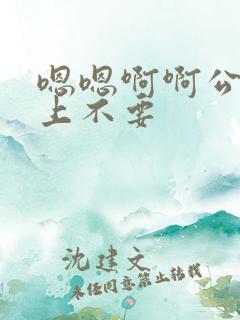 嗯嗯啊啊公
上不要
沈建文
未经同意禁止转载